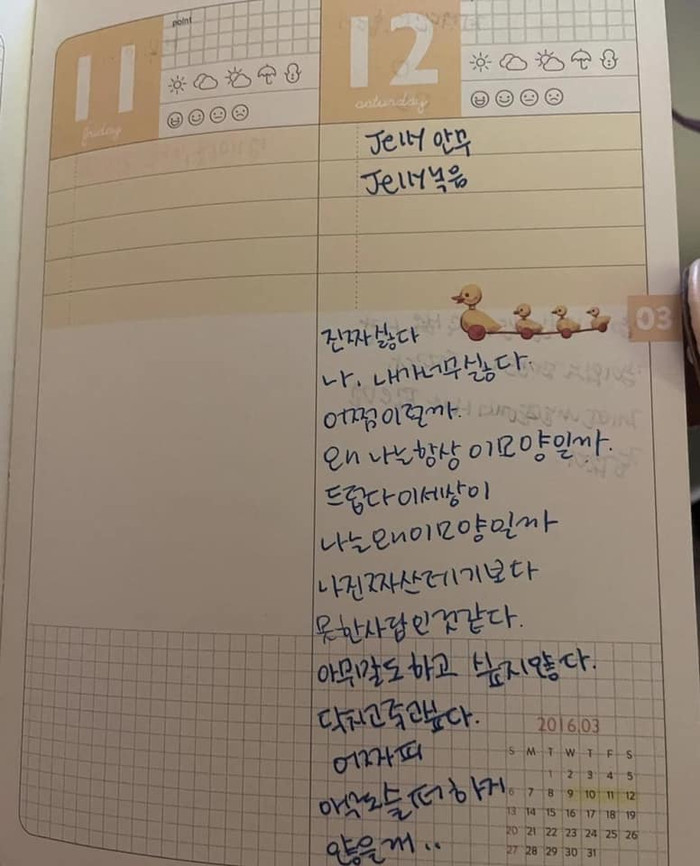 11
point
friday
12
saturday
Jelly 안무
Jelly 녹음
03
진짜 싫다
나. 내가 너무 싫다.
어쩜 이럴까.
왜 나는 항상 이모양일까.
드럽다 이세상이
나는 왜 이모양일까
나 진짜 쓰레기보다
못한 사람인 것 같다.
아무말도 하고 싶지 않다.
닥치고 죽고싶다.
어짜피
아무도 슬퍼하게
않을게..
2016.03
S M T W T F S
1 2 3 4 5
6 7 8 9 10 11 12
13 14 15 16 17 18 19
20 21 22 23 24 25 26
27 28 29 30 31